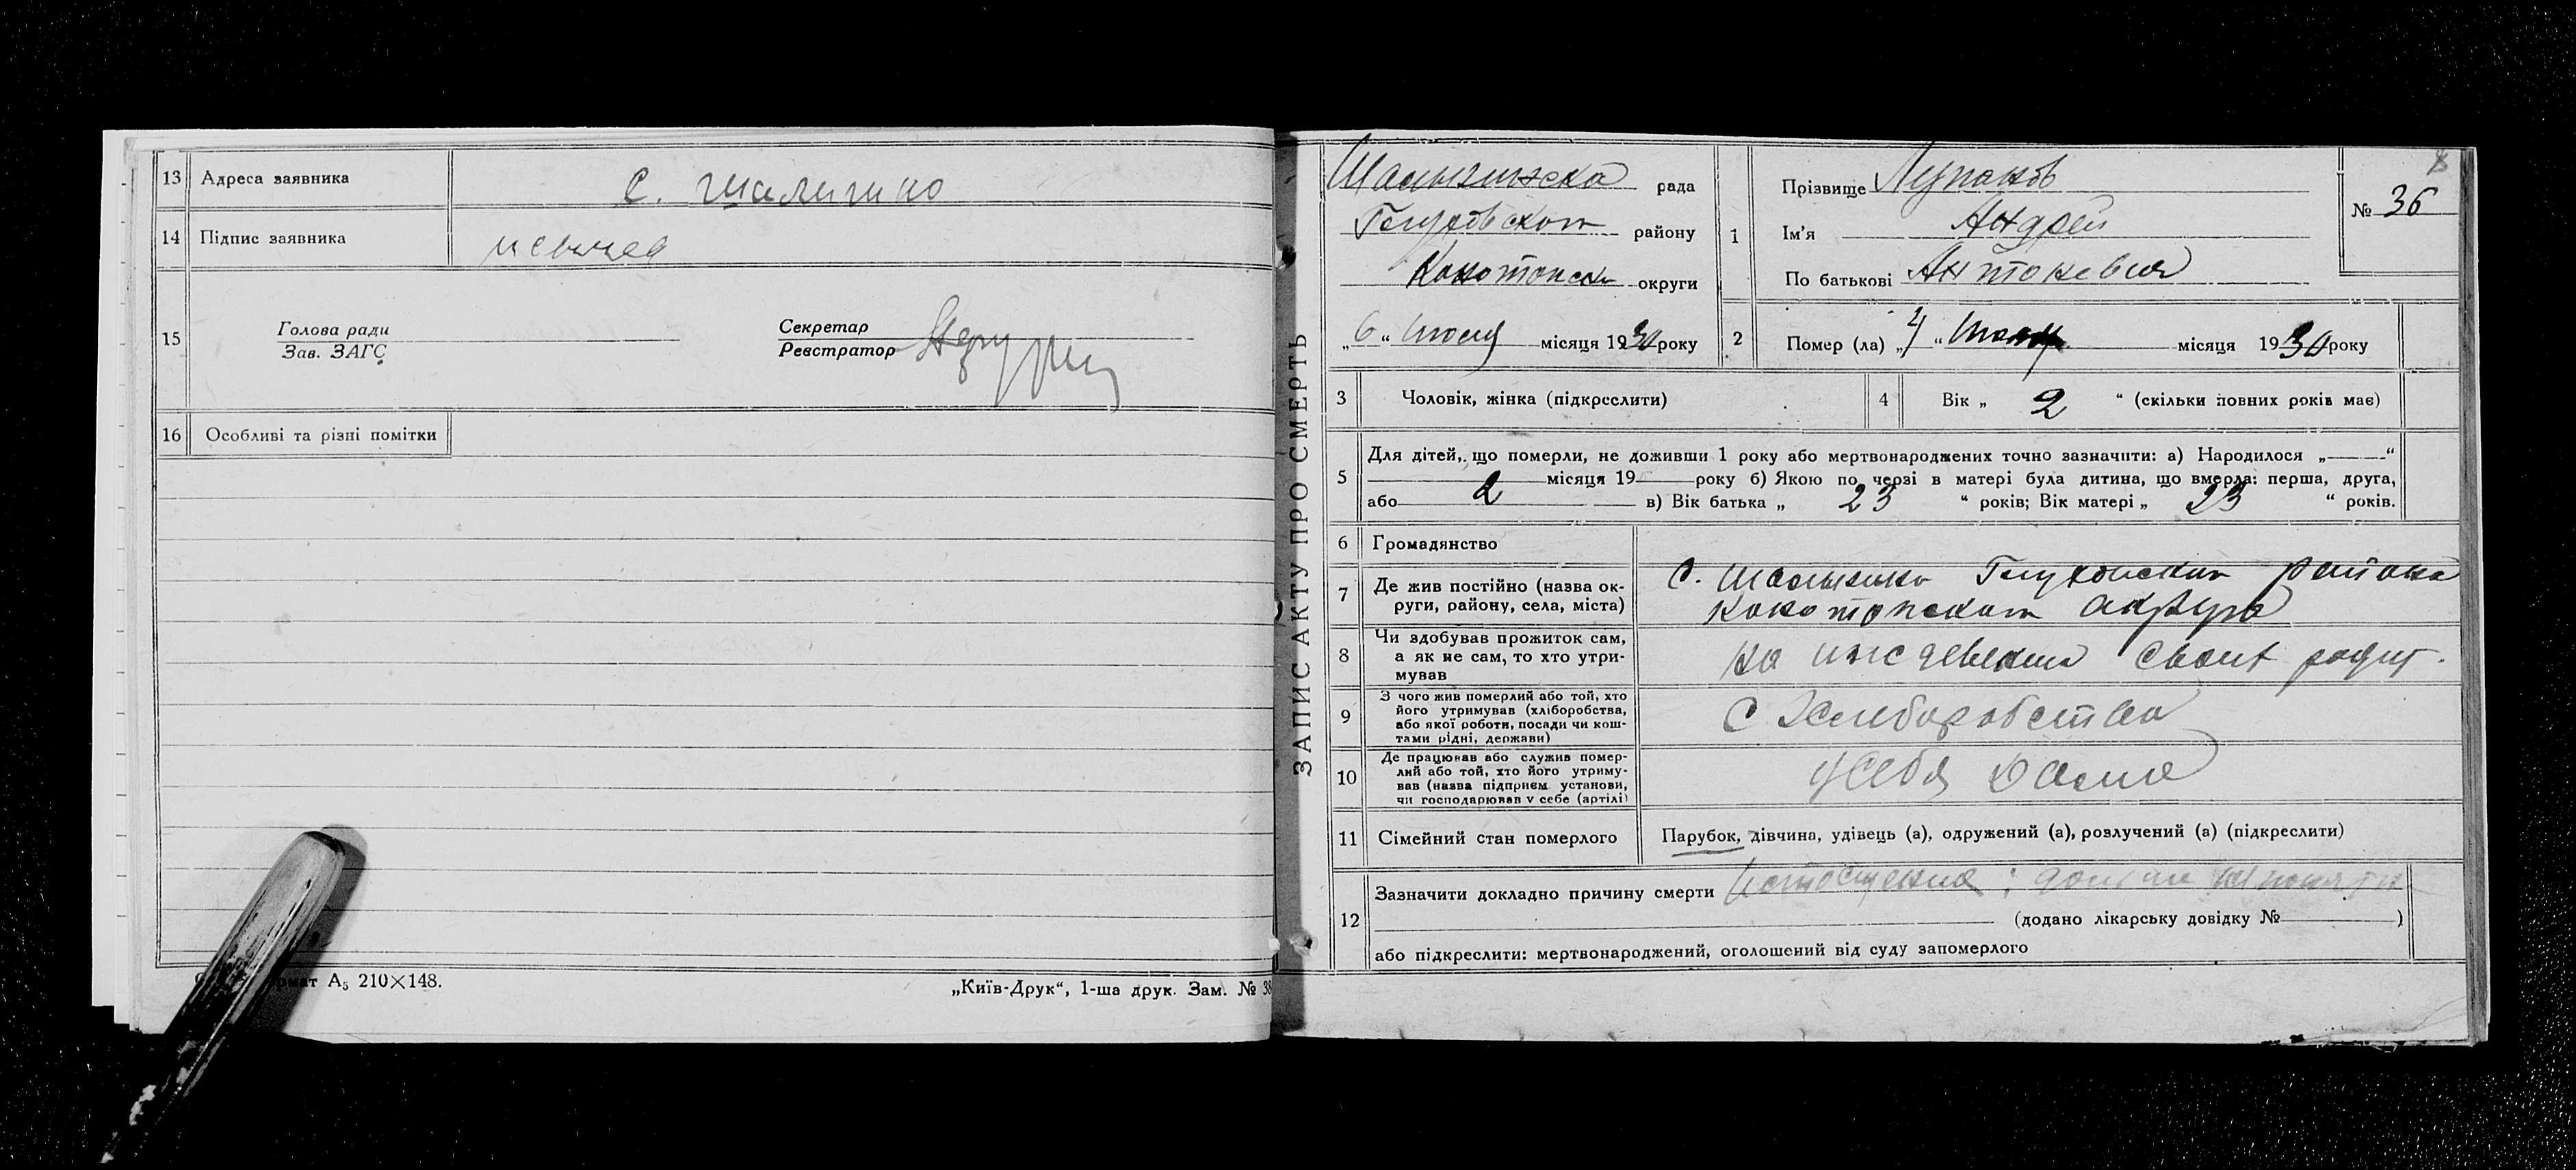 13 Адреса заявника с. Шалигино
14 Підпис заявника
15 Голова ради Секретар
Зав. ЗАГС Реєстратор
16 Особливі та різні помітки
Формат А5 210×148.
„Київ-Друк“, 1-ша друк. Зам. № 38
ЗАПИС АКТУ ПРО СМЕРТЬ
Шалыгинска рада
Глуховском району
Конотопск округи
„6“ Июля місяця 1930 року
1 Прізвище Лупанов
Ім'я Андрей
По батькові Антоневич
№ 36
2 Помер (ла) „4“ місяця 1930 року
3 Чоловік, жінка (підкреслити)
4 Вік „2“ (скільки повних років має)
5 Для дітей, що померли, не доживши 1 року або мертвонароджених точно зазначити: а) Народилося „——“
місяця 19 року б) Якою по черзі в матері була дитина, що вмерла: перша, друга,
або 2 в) Вік батька „23“ років; Вік матері „23“ років.
6 Громадянство
7 Де жив постійно (назва округи, району, села, міста) с. Шалыгино Глуховским района
Конотопском округа
8 Чи здобував прожиток сам,
а як не сам, то хто утри-
мував на иждевении своих родит.
9 З чого жив померлий або той, хто
його утримував (хліборобства,
або якої роботи, посади чи кош-
тами рідні, держави) С Хлиборобства
10 Де працював або служив помер-
лий або той, хто його утриму-
вав (назва підприєм. установи,
чи господарював у себе (артілі) у себя дома
11 Сімейний стан померлого Парубок, дівчина, удівець (а), одружений (а), розлучений (а) (підкреслити)
12 Зазначити докладно причину смерти Истощения;
(додано лікарську довідку № )
або підкреслити: мертвонароджений, оголошений від суду запомерлого